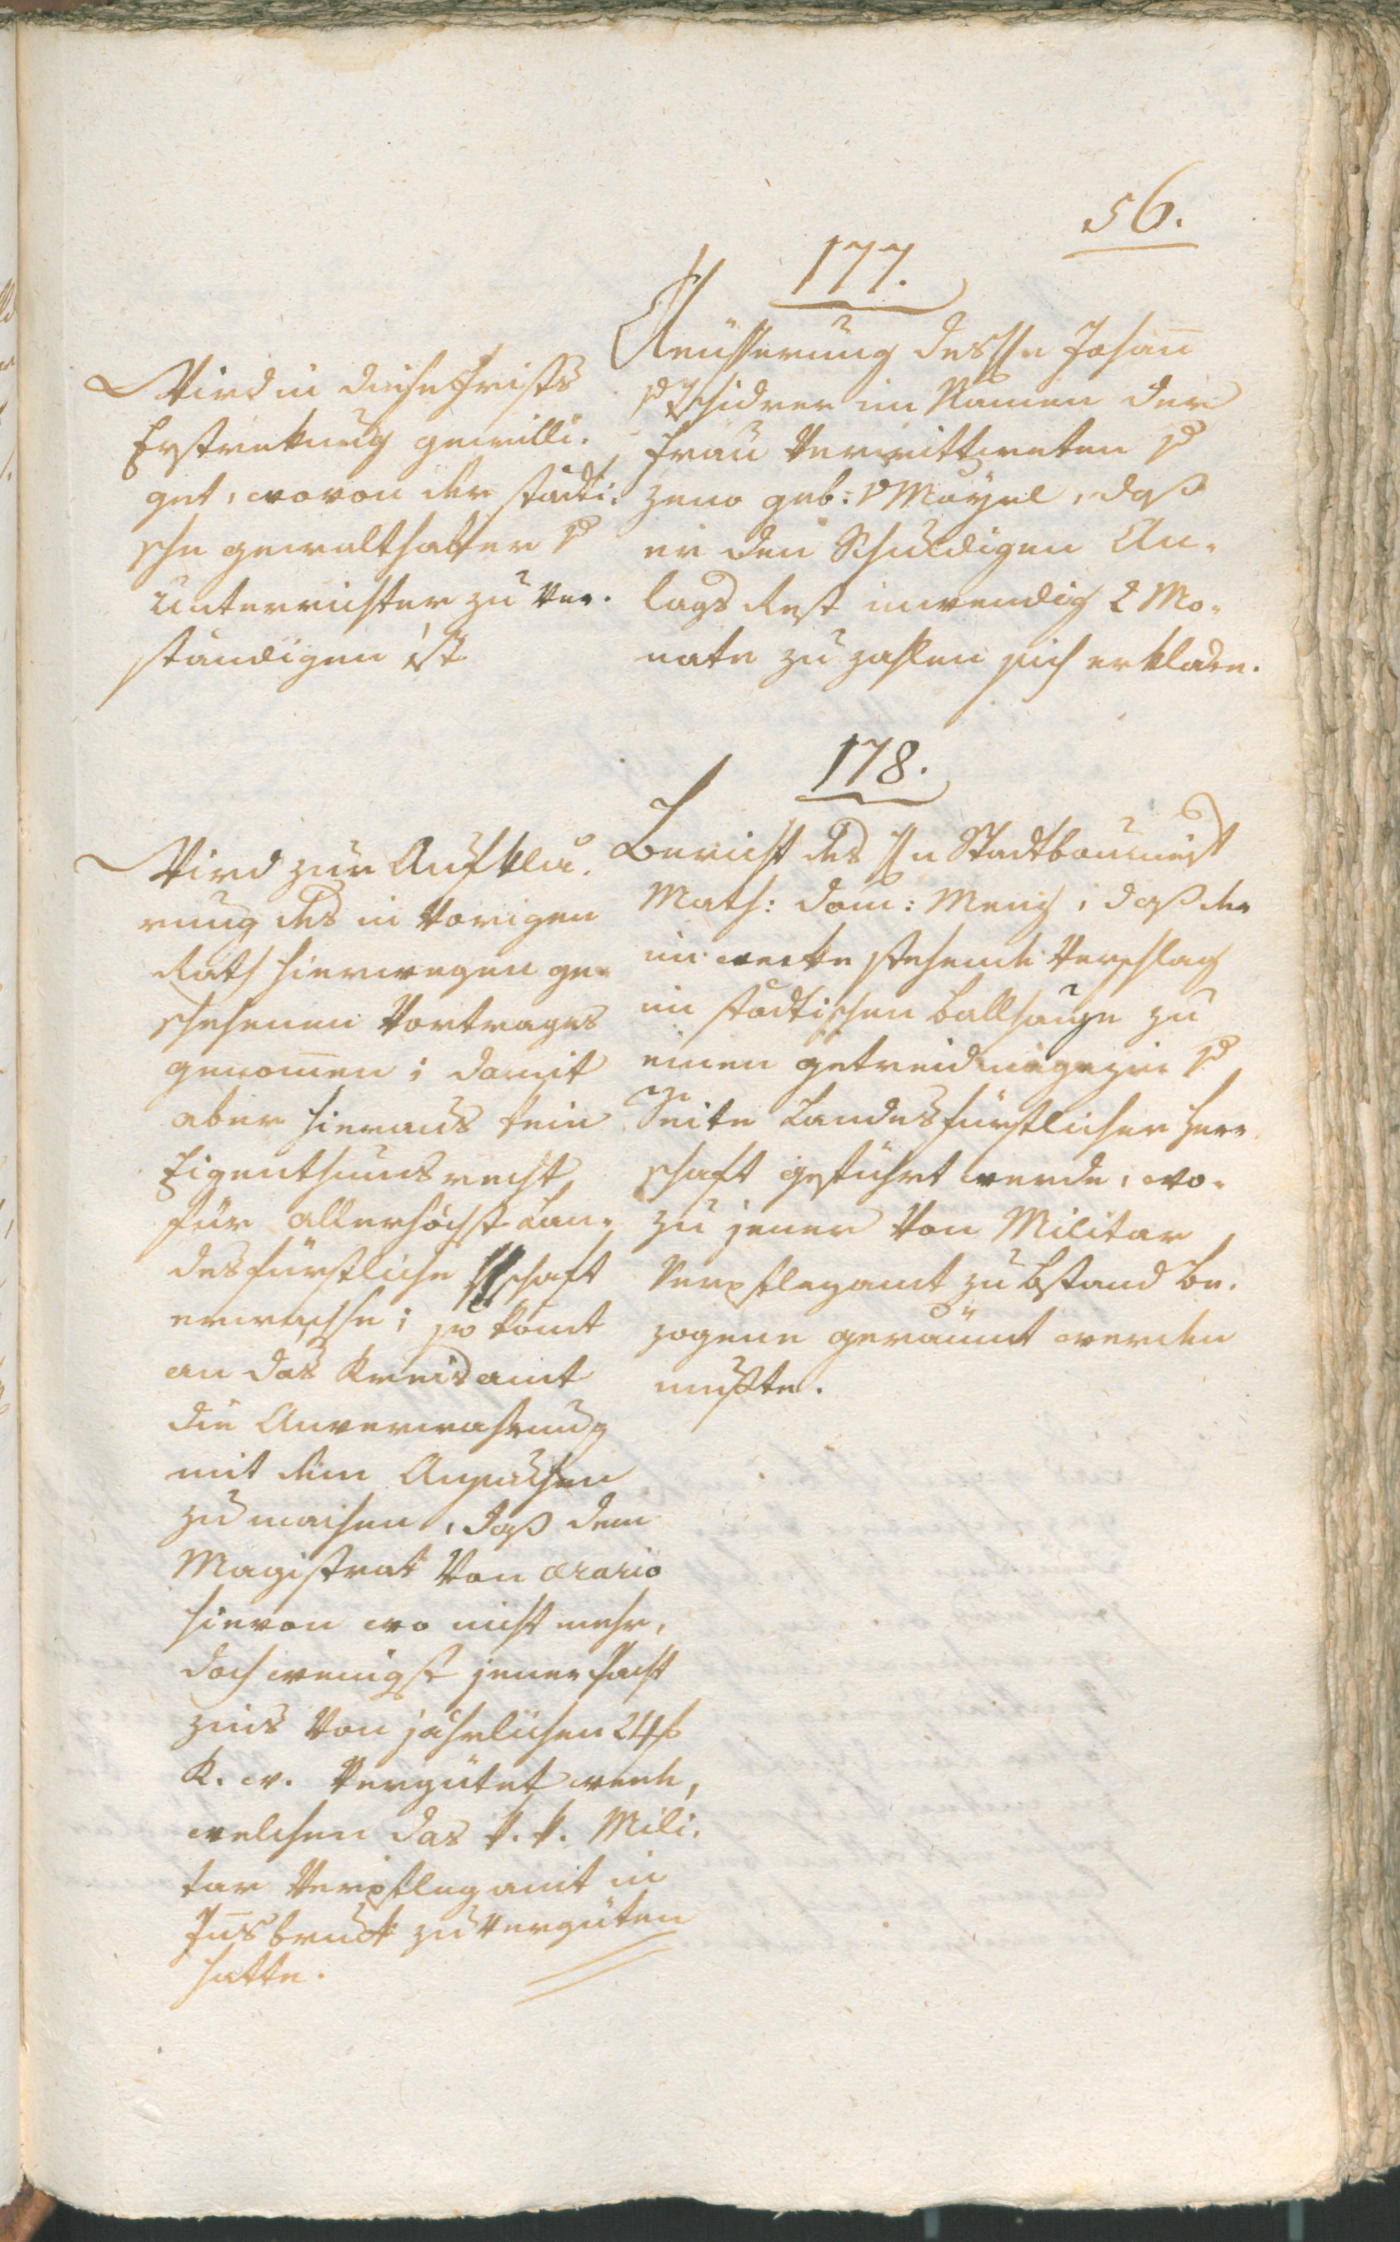 56.
177.
Aeusserung des Hn Johann
Tschidrer im Namen der
Frau Verwittweten v
Zeno geb: v Mayrl, daß
er den Schuldigen An-
lags Rest inwendig 2 Mo-
nate zu zahlen sich erkläre.
Wird in diese Frists
Erstrekung gewilli-
get, wovon der städti-
sche gewalthaber v
Unterrichter zu ver-
ständigen ist
178.
Bericht des Hn Stadtbaumeist
Math: Dom: Meng, daß der
im werke stehende Verschlag
im städtischen Ballhause zu
einem getreidmagazin v
Seite Landesfürstlicher Herr
schaft geführt werde, wo-
zu jener von Militar
Verpflegamt zu bstand be-
zogene geräumt werden
mußte.
Wird zur Aufklä-
rung des in vorigen
Rath hierwegen ge-
schehenen Vortrages
genommen; damit
aber hieraus kein
Eigenthumsrecht
für allerhöchst Lan-
desfürstliche Hschaft
erwachse; so kömt
an das Kreisamt
die Anverwahrung
mit dem Ansuchen
zu machen, daß dem
Magistrat von ærario
hievon wo nicht mehr,
doch wenigst jener Pacht
zins von jährlichen 24 f
R. w. vergütet werde,
welchen das k. k. Mili-
tar Verpflegamt in
Innsbruck zu vergüten
hatte.